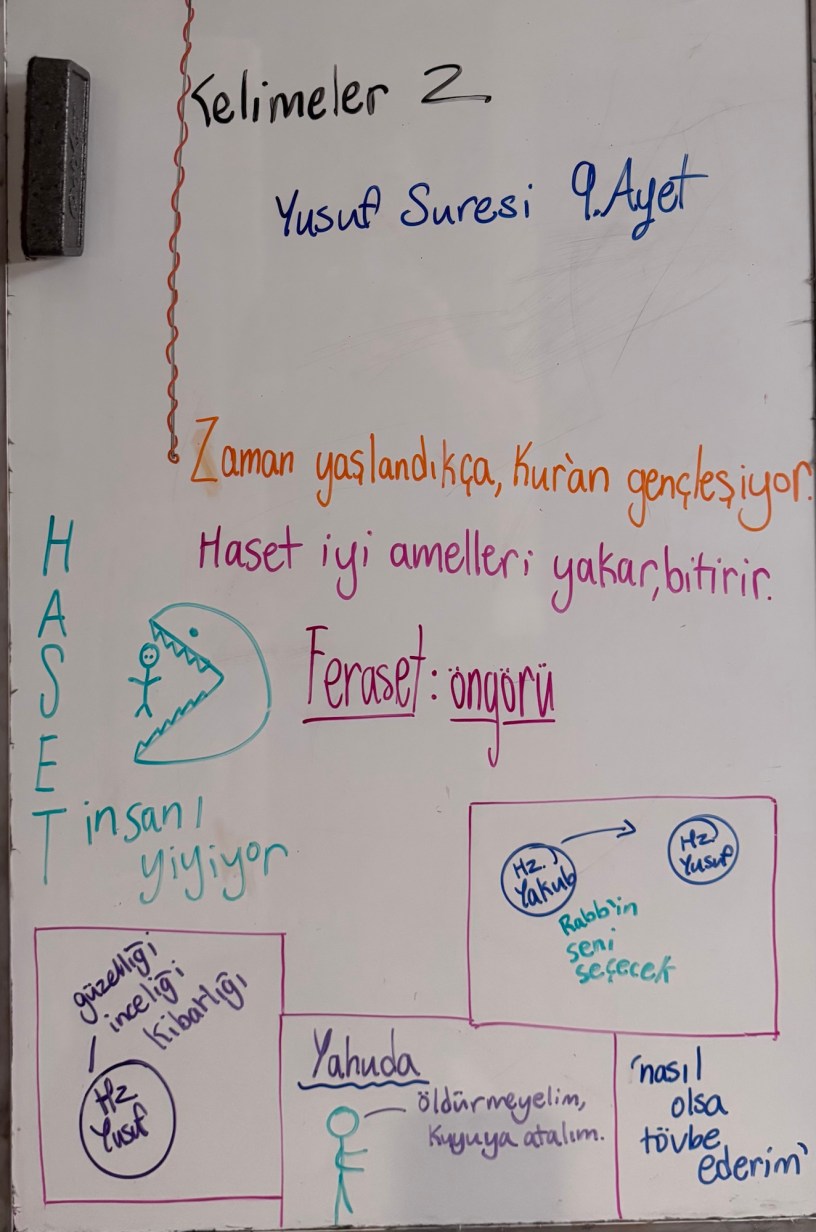 Kelimeler 2
Yusuf Suresi 9.Ayet
Zaman yaşlandıkça, Kur'an gençleşiyor.
Haset iyi amelleri yakar, bitirir.
Feraset: öngörü
HASET
insanı
yiyiyor
Hz.
Yakub
Hz
Yusuf
Rabb'in
seni
seçecek
güzelliği
inceliği
kibarlığı
Hz
Yusuf
Yahuda
öldürmeyelim,
kuyuya atalım.
'nasıl
olsa
tövbe
ederim'